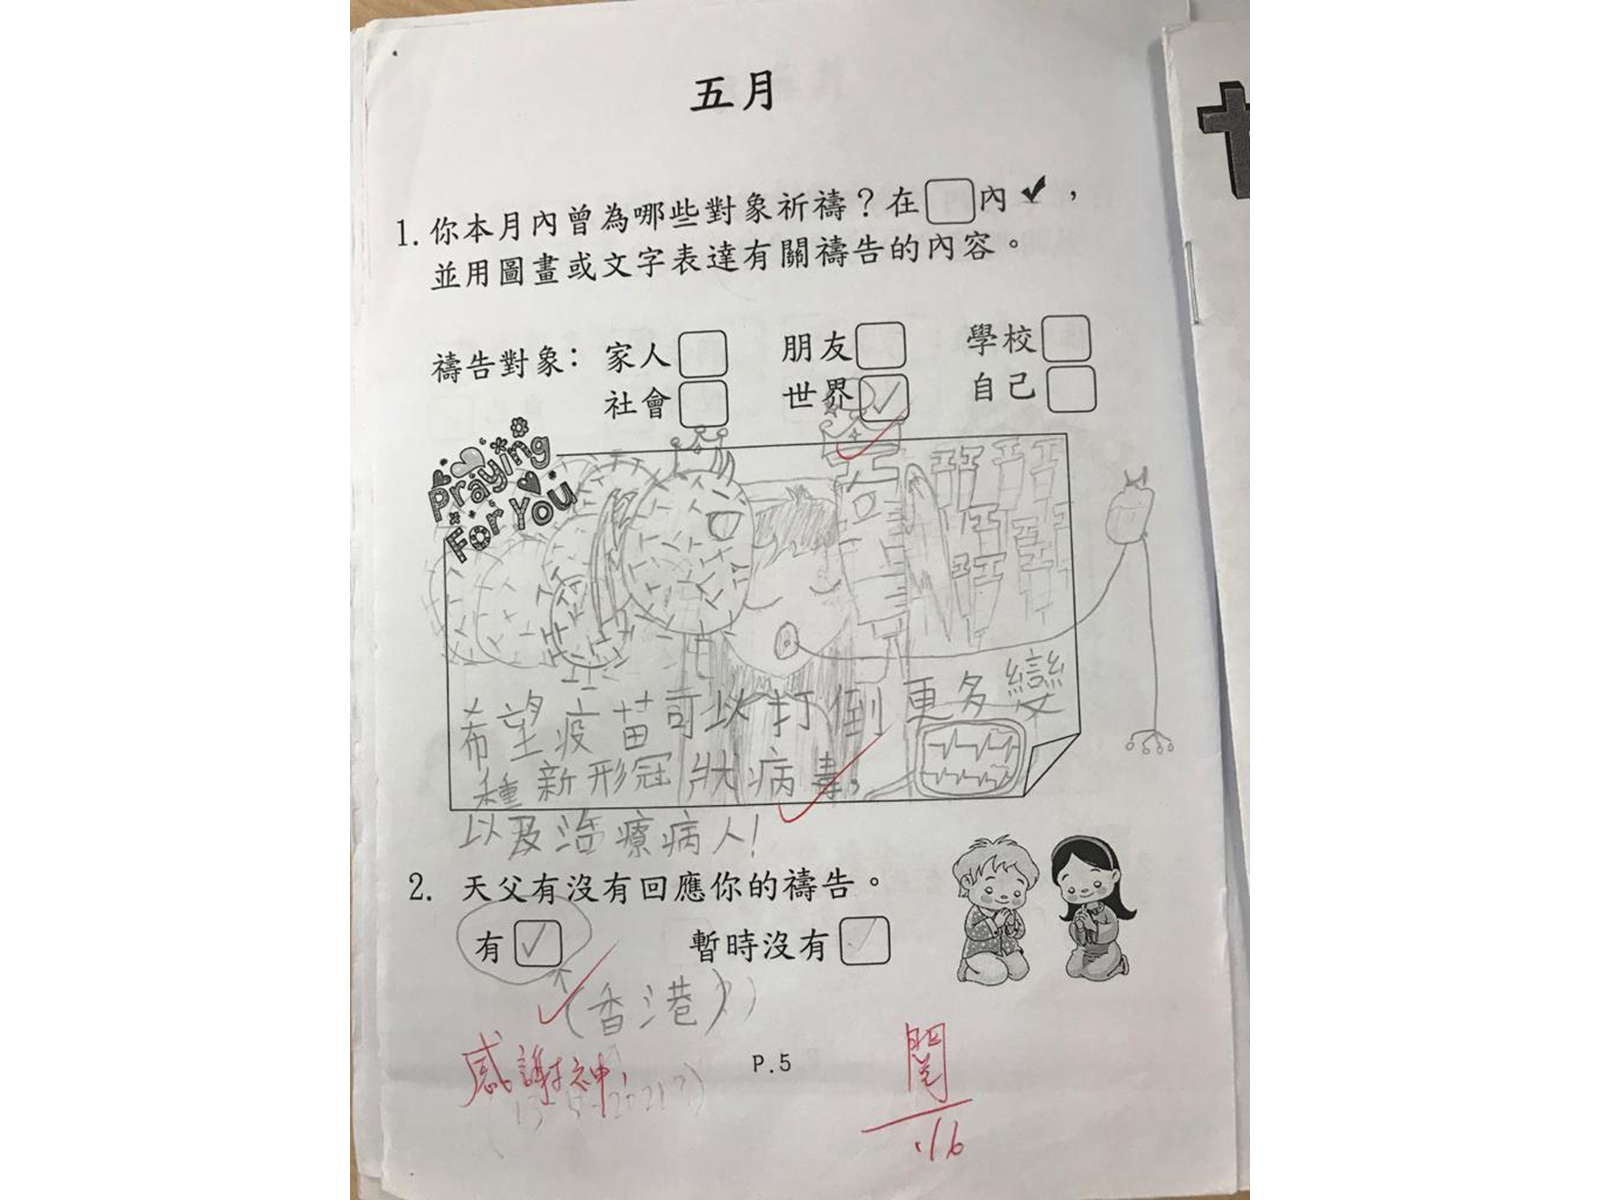 五月
1. 你本月內曾為哪些對象祈禱？在□內✔，
並用圖畫或文字表達有關禱告的內容。
禱告對象： 家人□ 朋友□ 學校□
社會□ 世界☑ 自己□
Praying
For You
希望疫苗可以打倒更多變
種新形冠狀病毒，
以及治療病人！
2. 天父有沒有回應你的禱告。
有☑ 暫時沒有☑
(香港)
感謝神，
P.5
閱
1/6